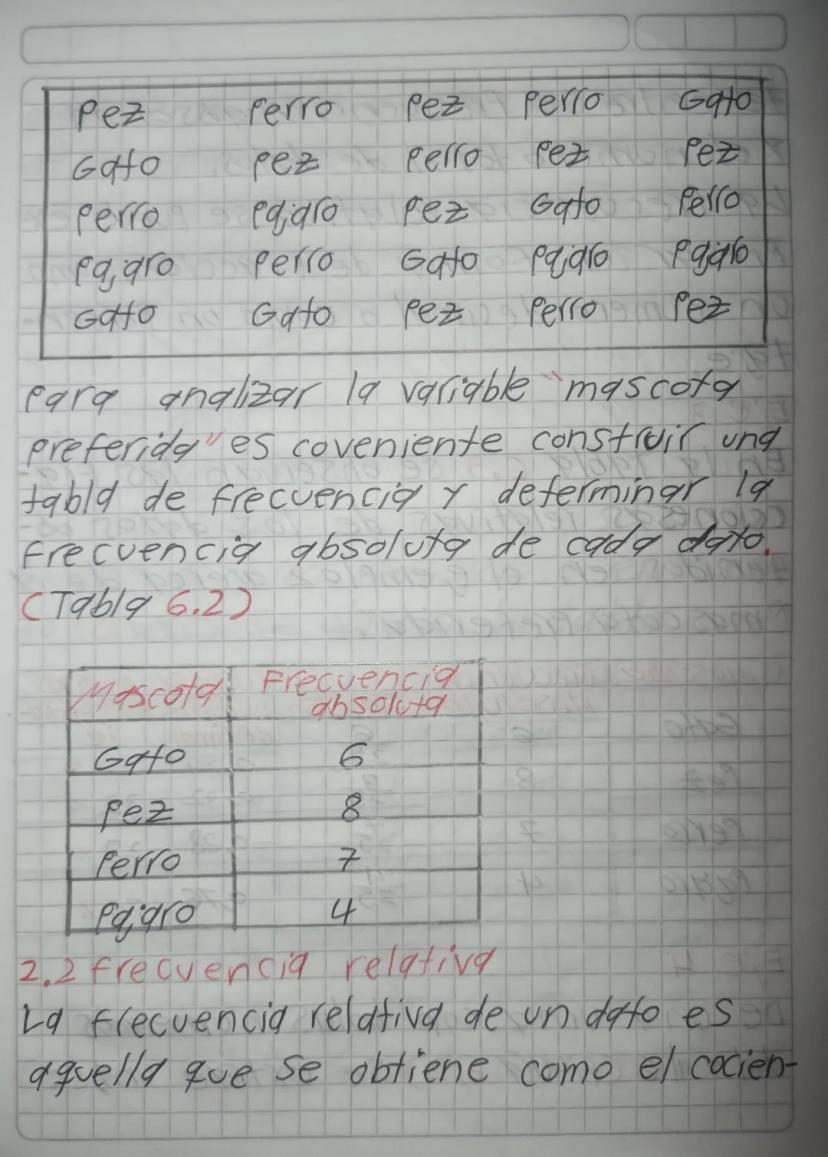 Pez Perro Pez Perro Gato
Gato Pez Perro Pez Pez
Perro Pajaro Pez Gato Perro
Pajaro Perro Gato Pajaro Pajaro
Gato Gato Pez Perro Pez
Para analizar la variable "mascota
preferida" es coveniente construir una
tabla de frecuencia y determinar la
Frecuencia absoluta de cada dato.
(Tabla 6.2)
Mascota Frecuencia
absoluta
Gato 6
Pez 8
Perro 7
Pajaro 4
2.2 frecuencia relativa
La frecuencia relativa de un dato es
aquella que se obtiene como el cocien-